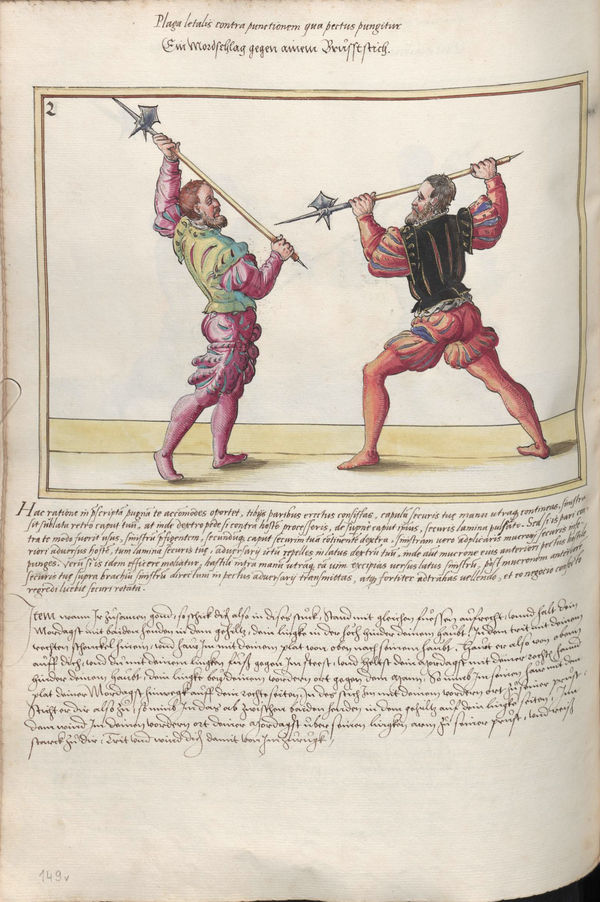 Plaga letalis contra punctionem qua pectus pungitur
Ein Mordschlag gegen ainem Bruststich.
2
Hac ratione in pscripta pugna te accomodes oportet, tibijs paribus erectus consistas, capulu securis tuę manu utraq continens, sinistra
sit sublata retro caput tuu, at inde dextro pede si contra hoste processeris, de supne caput ipsius, securis lamina pulsato. Sed si is pari con
tra te modo fuerit usus, sinistru pfigentem, secunduq caput securim tua continente dextra, sinistram vero adplicaris mucroni securis infe
riori adversus hoste, tum lamina securis tuę, adversarij ictu repelles in latus dextru tuu, inde aut mucrone eius anteriori pectus hostile
punges. Veru si is idem efficere moliatur, hastile intra manu utraq tu cum excipias versus latus sinistru, post mucronem anteriore
securis tuę supra brachiu sinistru directum in pectus adversarij transmittas, atq fortiter adtrahas vellendo, et eo negocio confecto
regredi licebit securi rotata.
Item wann Ir zusamen gond, so schick dich also in dises stuck, Stand mit gleichen fuessen aufrecht, unnd halt dein
Mordagst mit baiden henden in dem gehiltz, dein lingke in der hoch hinder deinem haubt. In dem trit mit deinem
rechten schenckel hinein, und haw Im mit deinem plat von oben nach seinem haubt. Hawt er also von oben
auff dich, und du mit deinem lingken fuoß gegen Im steest, und heltst dein mordagst mit deiner rechte hannd
hinder deinem haubt, dein lingke bey deinem vordern ort gegen dem mann. So nimb Im seinen haw mit dem
plat deiner Mordagst hinwegk auff dein rechte seiten, In des stich Im mit deinem vordern ort zu seiner prust.
Sticht er dir also zu, so nimb In das es zwischen baiden henden in dem gehiltz auff dein lingke seiten, Im
dem wind Im deinen vordern ort deiner Mordagst uber seinen lingken arm zu seiner prust, und reiß
starck zu dir, Trit und wind dich damit von Im zuruogk.
149v